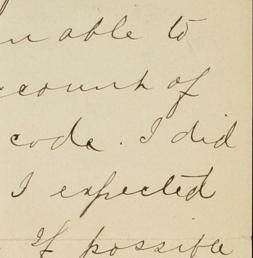 able to
account of
code. I did
I expected
If possible